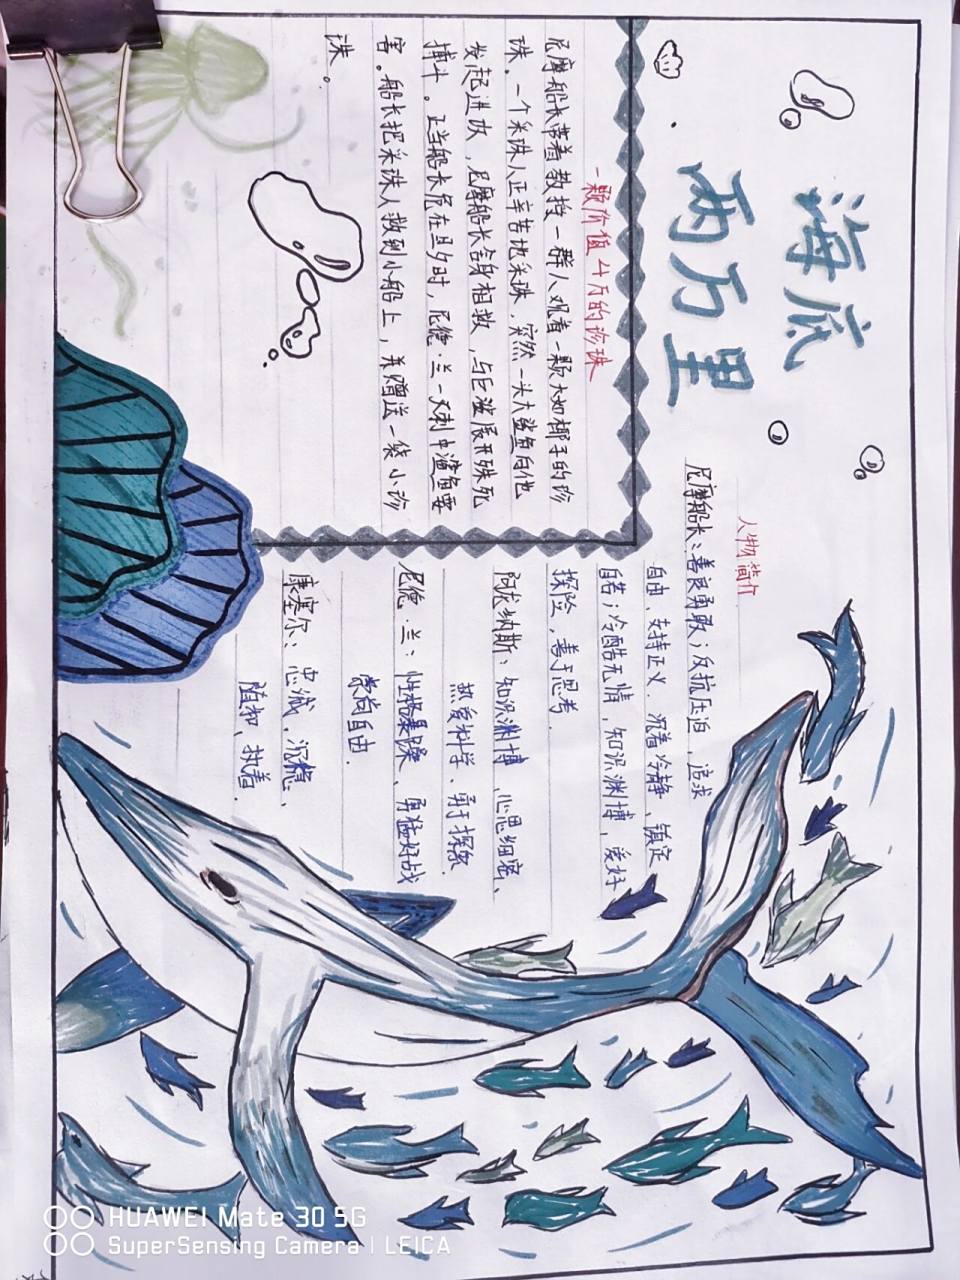 海底
两万里
一颗价值4万的珍珠
尼摩船长带着教授一群人观看一颗大如椰子的珍
珠。一个采珠人正辛苦地采珠,突然一头大鲨鱼向他
发起进攻,尼摩船长舍身相救,与巨鲨展开殊死
搏斗。正当船长危在旦夕时,尼德·兰一叉刺中鲨鱼要
害。船长把采珠人救到小船上,并赠送一袋小珍
珠。
人物简介
尼摩船长:善良勇敢;反抗压迫、追求
自由、支持正义、沉着冷静、镇定
自若;冷酷无情,知识渊博,爱好
探险,善于思考
阿龙纳斯:知识渊博、心思细密、
热爱科学、勇于探索.
尼德·兰:性格暴躁、勇猛好战
崇尚自由.
康塞尔:忠诚,沉稳、
随和、执着.
HUAWEI Mate 30 5G
SuperSensing Camera | LEICA